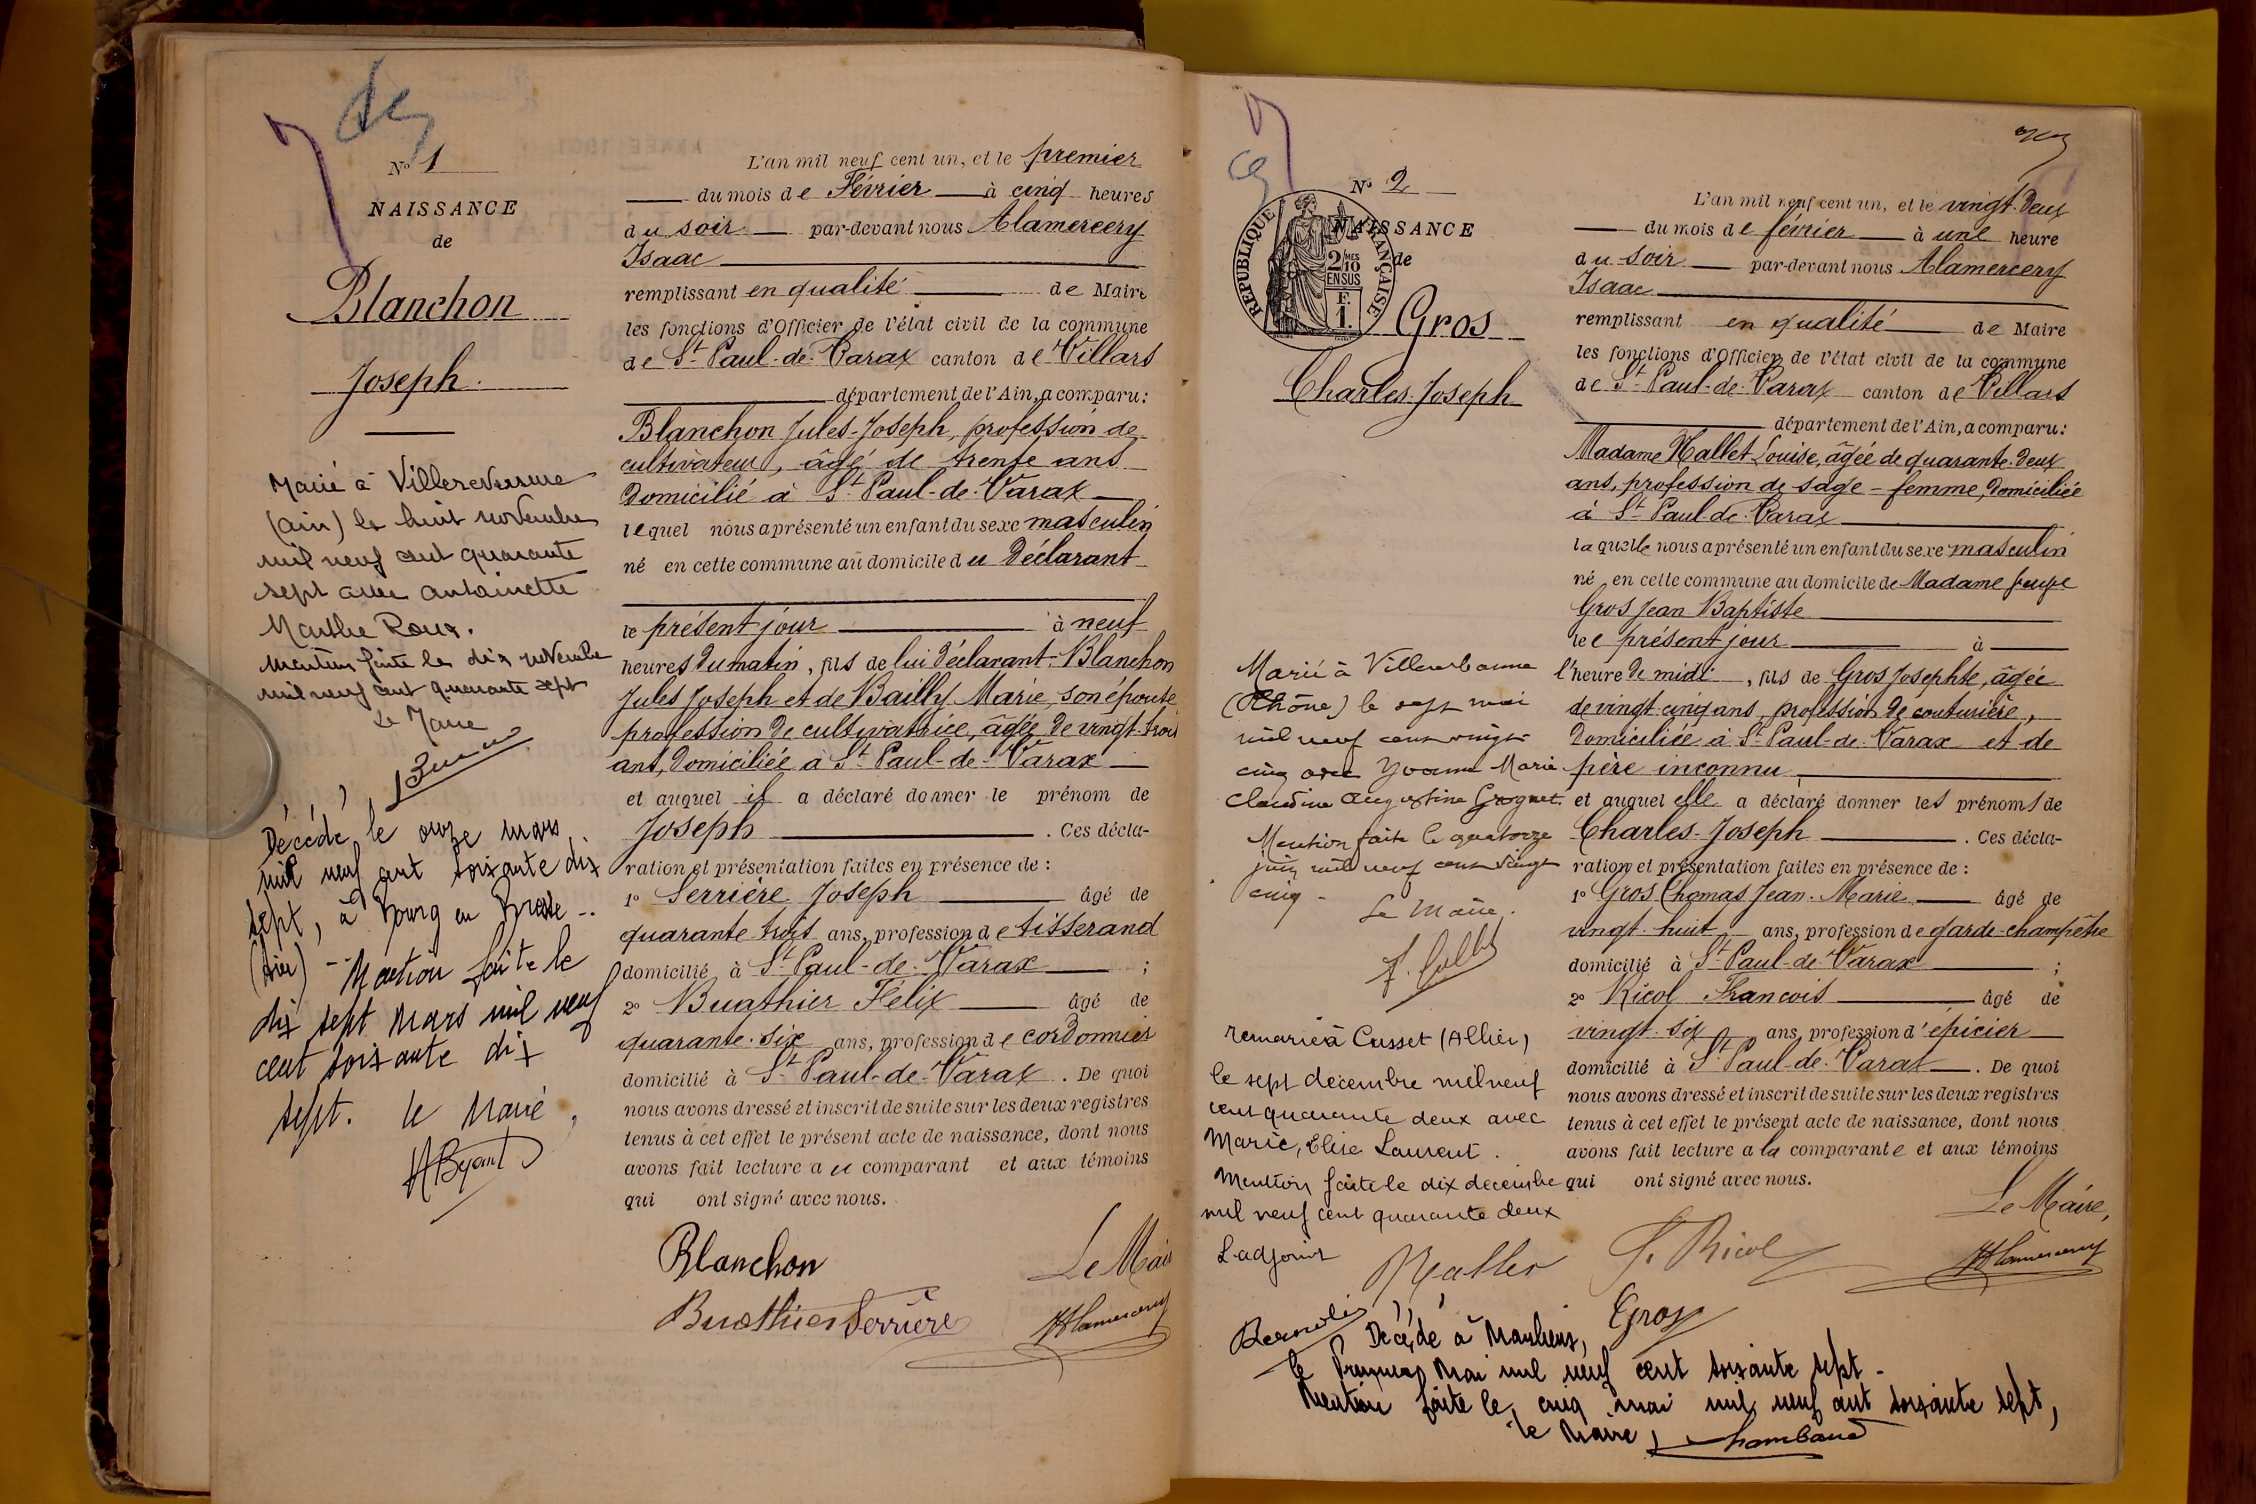 Nº 1
NAISSANCE
de
Blanchon
Joseph.
Marié à Villereversure
(Ain) le huit novembre
mil neuf cent quarante
sept avec Antoinette
Marthe Roux.
Mention faite le dix novembre
mil neuf cent quarante sept
Le Maire
Décédé le onze mars
mil neuf cent soixante dix
sept, à Bourg en Bresse
(Ain) - Mention faite le
dix sept mars mil neuf
cent soixante dix
sept. le Maire,
L'an mil neuf cent un, et le premier
du mois de Février à cinq heures
du soir par-devant nous Alamercery
Isaac
remplissant en qualité de Maire
les fonctions d'Officier de l'état civil de la commune
de St Paul-de-Varax canton de Villars
département de l'Ain, a comparu:
Blanchon Jules-Joseph, profession de
cultivateur, âgé de trente ans
domicilié à St Paul-de-Varax
lequel nous a présenté un enfant du sexe masculin
né en cette commune au domicile du Déclarant
le présent jour à neuf
heures du matin, fils de lui déclarant Blanchon
Jules Joseph et de Bailly Marie, son épouse,
profession de cultivatrice, âgée de vingt-trois
ans, domiciliée à St Paul-de-Varax
et auquel il a déclaré donner le prénom de
Joseph . Ces décla-
ration et présentation faites en présence de :
1º Serrière Joseph âgé de
quarante-trois ans, profession de tisserand
domicilié à St Paul-de-Varax ;
2º Buathier Félix âgé de
quarante-six ans, profession de cordonnier
domicilié à St Paul-de-Varax . De quoi
nous avons dressé et inscrit de suite sur les deux registres
tenus à cet effet le présent acte de naissance, dont nous
avons fait lecture au comparant et aux témoins
qui ont signé avec nous.
Blanchon
Le Mai
Buathier Serrière
Alamercery
Nº 2
NAISSANCE
de
REPUBLIQUE FRANÇAISE
2/10 MES
EN SUS
F.
1.
Gros
Charles-Joseph
Marié à Villeurbanne
(Rhône) le sept mai
mil neuf cent vingt
cinq avec Yvonne Marie
Claudine Augustine Grognet.
Mention faite le quatorze
juin mil neuf cent vingt
cinq -
Le Maire.
Remarié à Cusset (Allier)
le sept décembre mil neuf
cent quarante deux avec
Marie, Elise Laurent.
Mention faite le dix décembre
mil neuf cent quarante deux
L'adjoint
L'an mil neuf cent un, et le vingt-deux
du mois de février à une heure
du soir par-devant nous Alamercery
Isaac
remplissant en qualité de Maire
les fonctions d'Officier de l'état civil de la commune
de St Paul-de-Varax canton de Villars
département de l'Ain, a comparu:
Madame Mallet Louise, âgée de quarante-deux
ans, profession de sage-femme, domiciliée
à St Paul de-Varax
laquelle nous a présenté un enfant du sexe masculin
né en cette commune au domicile de Madame
Gros Jean Baptiste
le présent jour à
l'heure de midi, fils de Gros Josephte, âgée
de vingt cinq ans, profession de couturière,
domiciliée à St Paul-de-Varax et de
père inconnu
et auquel elle a déclaré donner les prénoms de
Charles-Joseph . Ces décla-
ration et présentation faites en présence de :
1º Gros Thomas Jean-Marie âgé de
vingt-huit ans, profession de garde-champêtre
domicilié à St Paul-de-Varax ;
2º Ricol Francois âgé de
vingt-six ans, profession d'épicier
domicilié à St Paul-de-Varax . De quoi
nous avons dressé et inscrit de suite sur les deux registres
tenus à cet effet le présent acte de naissance, dont nous
avons fait lecture a la comparante et aux témoins
qui ont signé avec nous.
Le Maire,
Mallet F. Ricol Alamercery
Gros
Décédé à
le premier mai mil neuf cent soixante sept -
Mention faite le cinq mai mil neuf cent soixante sept,
le Maire, Chambaud